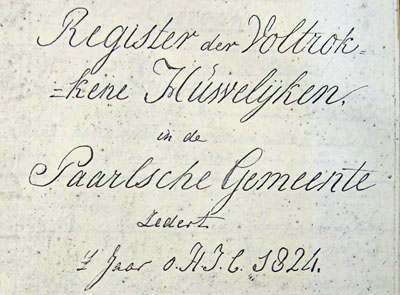 Register der Voltrok=
=kene Hüwelijken.
in de
Paarlsche Gemeente
Zedert
't Jaar o.H.J.C. 1824.